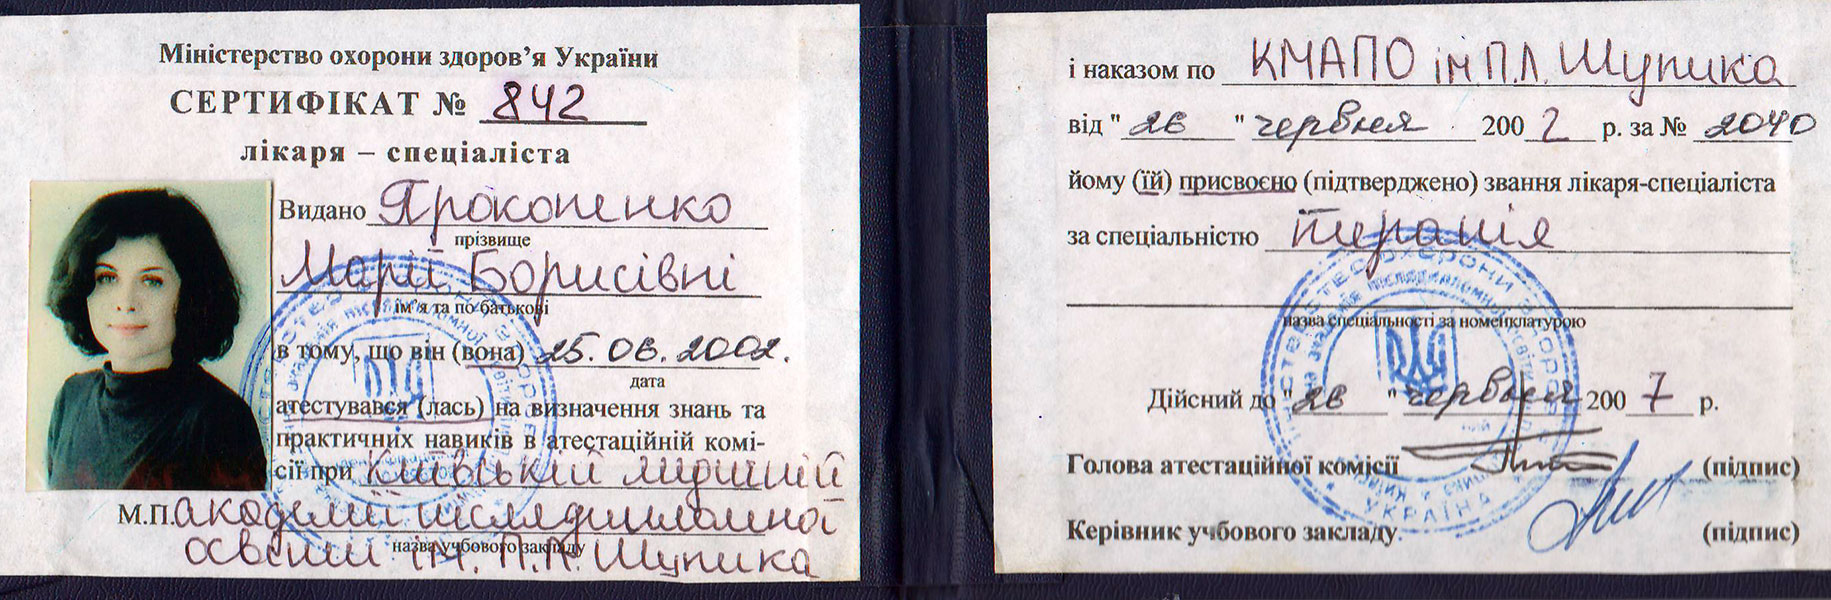 Міністерство охорони здоров’я України
СЕРТИФІКАТ № 842
лікаря – спеціаліста
Видано Прокопенко
прізвище
Марії Борисівні
ім’я та по батькові
в тому, що він (вона) 25.06.2002.
дата
атестувався (лась) на визначення знань та
практичних навиків в атестаційній комі-
сії при Київській медичній
М.П. академії післядипломної
освіти ім. П.Л. Шупика
назва учбового закладу
і наказом по КМАПО ім П.Л. Шупика
від "26" червня 2002 р. за № 2040
йому (їй) присвоєно (підтверджено) звання лікаря-спеціаліста
за спеціальністю терапія
назва спеціальності за номенклатурою
Дійсний до "26" червня 2007 р.
Голова атестаційної комісії (підпис)
Керівник учбового закладу (підпис)
УКРАЇНА